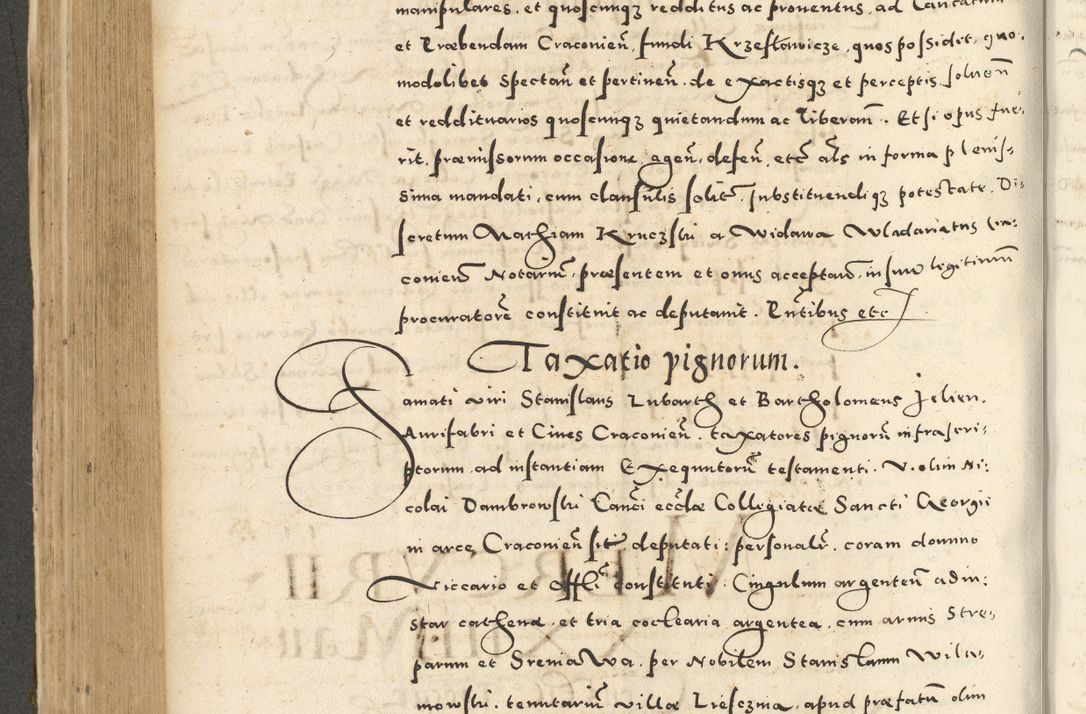 manipulares, et quoscunqȝ redditus ac proventus, ad Cantariam
et Præbendam Craconieñ, fundi Krzesławicze, quos possidet, quo-
modolibet spectañ et pertineñ, de exactisqȝ et perceptis, solueñ
et reddituarios quoscunqȝ quietandum ac liberañ. Et si opus fue-
rit, præmissorum occasione, ageñ, defeñ, etc̃ al̃s in forma plenis-
sima mandati, cum clausulis solit̃, substituendiqȝ potestate, Di-
scretum Mathiam Kruczski a Widawa Vladariatus Cra-
conieñ Notariũ, præsentem et onus acceptañ, in suũ legitimũ
procuratorẽ constituit ac deputavit. Pñtibus etc
Taxatio pignorum.
Famati viri Stanislaus Lubarth et Bartholomeus Jelien,
Aurifabri et Cives Craconieñ, taxatores pignorũ infrascri-
ptorum, ad instantiam Exequutorũ testamenti, V. olim Ni-
colai Dambrowski Canc̃i eccl̃æ Collegiatæ Sancti Georgii
in arce Craconieñ sit̃ deputati, personalr̃, coram domino
Viccario et Offl̃i constituti, Cingulum argenteũ ad in-
star cathenæ, et tria coclearia argentea, cum armis Stre-
parum et Sreniawa, per Nobilem Stanislaum Wila-
mowski, tenutariũ villæ Liesczna, apud præfatũ olim